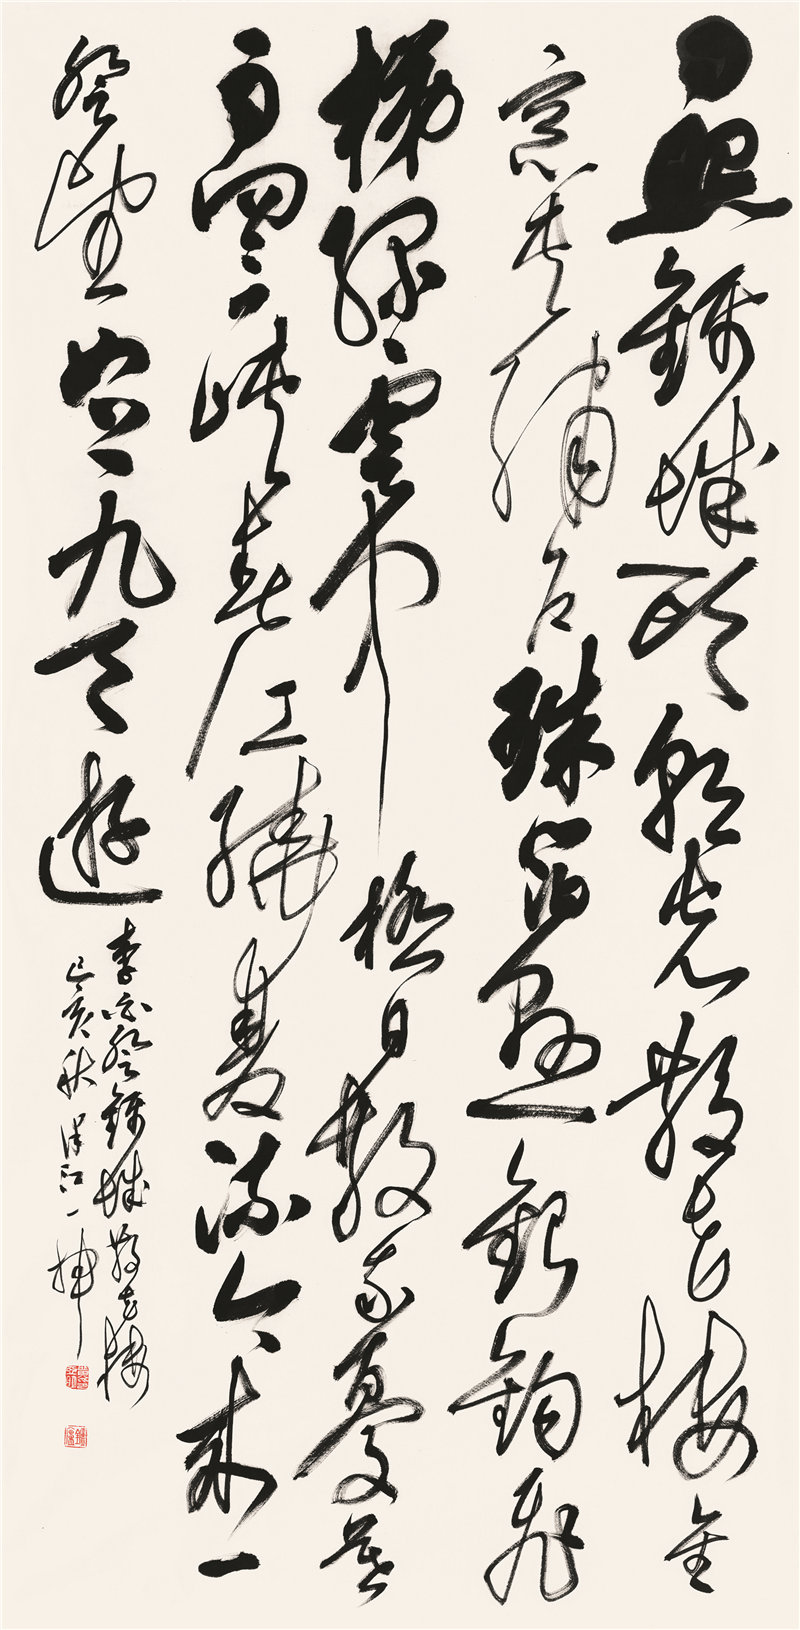 日照錦城頭朝光散花樓金
窗夾繡戶珠箔懸銀鉤飛
梯綠雲中極目散我憂暮
雨向三峽春江繞雙流今來一
登望如上九天遊
李白登錦城散花樓
己亥秋漢江一